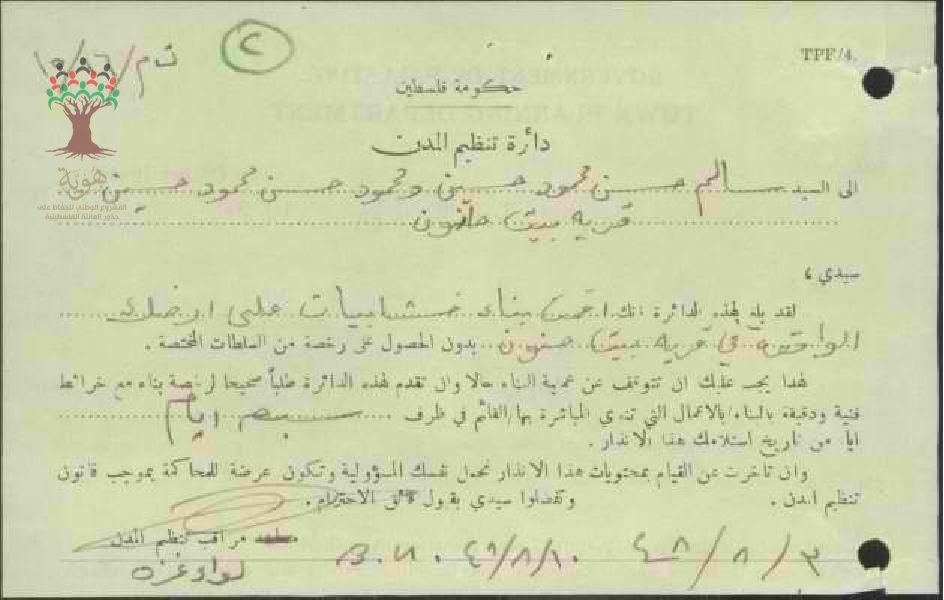 TPF/4.
حكومة فلسطين
دائرة تنظيم المدن
الى السيد سالم حسن محمود حسين ومحمود حسن محمود حسين
قرية بيت حانون
هوية
المشروع الوطني للحفاظ على
جذور العائلة الفلسطينية
سيدي ،
لقد بلغ لهذه الدائرة انك بناء خشابيات على ارضك
الواقعة في قرية بيت حنون بدون الحصول على رخصة من السلطات المختصة .
لهذا يجب عليك ان تتوقف عن عملية البناء حالا وان تقدم لهذه الدائرة طلباً صحيحا لرخصة بناء مع خرائط
فنية ودقيقة بالبناء/بالاعمال التي تنوي المباشرة بها/القائم في ظرف سبعة ايام
اياماً من تاريخ استلامك هذا الانذار .
وان تأخرت عن القيام بمحتويات هذا الانذار تحمل نفسك المسؤولية وتكون عرضة للمحاكمة بموجب قانون
تنظيم المدن . وتفضلوا سيدي بقبول فائق الاحترام .
مراقب تنظيم المدن
لواء غزه
٤٨/٨/٣